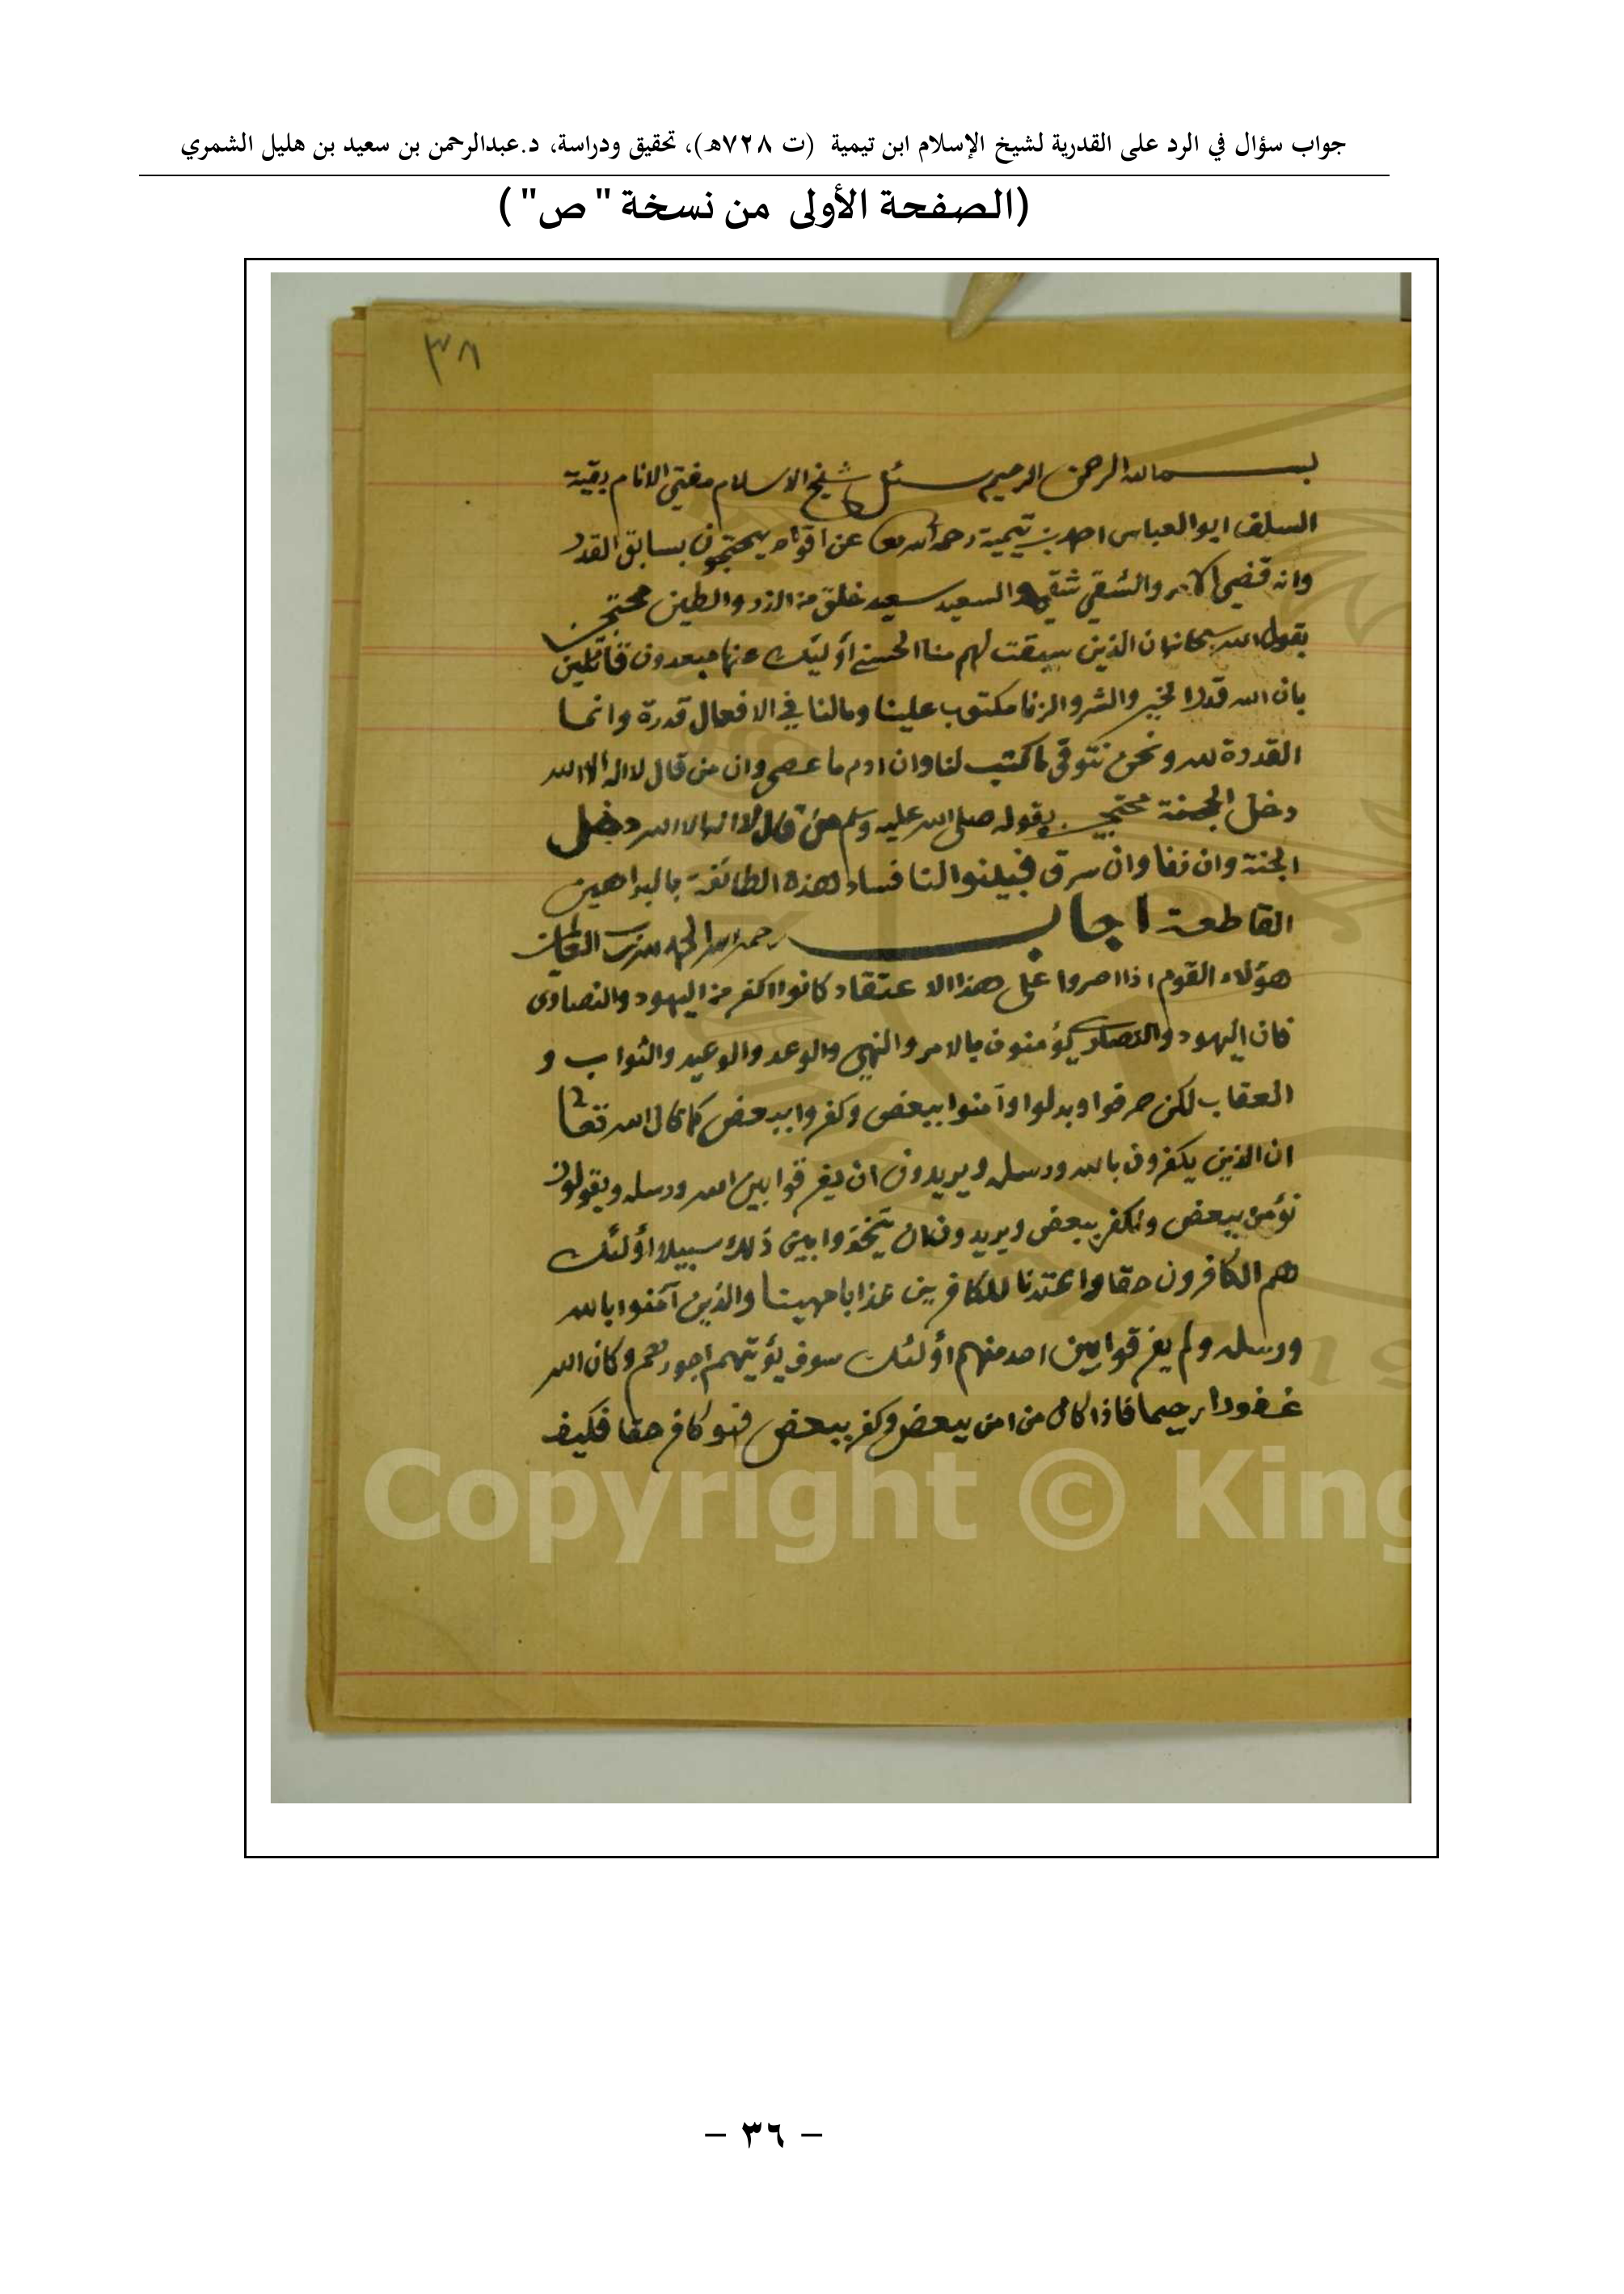 جواب سؤال في الرد على القدرية لشيخ الإسلام ابن تيمية (ت ٧٢٨هـ)، تحقيق ودراسة، د.عبدالرحمن بن سعيد بن هليل الشمري
(الصفحة الأولى من نسخة " ص" )
٣٨
بسم الله الرحمن الرحيم سئل شيخ الاسلام مفتي الانام بقية
السلف ابو العباس احمد بن تيمية رحمه الله تعا عن اقوام يحتجون بسابق القدر
وانه قضي الامر والشقي شقي والسعيد سعيد خلق من الذر والطين محتجين
بقول الله سبحانه ان الذين سبقت لهم منا الحسنى أولئك عنها مبعدون قائلين
بان الله قدر الخير والشر والزنا مكتوب علينا ومالنا في الافعال قدرة وانما
القدرة لله ونحن نتوقى ما كتب لنا وان ادم ما عصى وان من قال لا اله الا الله
دخل الجنة محتجين بقوله صلى الله عليه وسلم من قال لا اله الا الله دخل
الجنة وان زنا وان سرق فبينوا لنا فساد هذه الطائفة بالبراهين
القاطعة اجاب رحمه الله الحمد لله رب العالمين
هؤلاء القوم اذا اصروا على هذا الاعتقاد كانوا اكفر من اليهود والنصارى
فان اليهود والنصارى يؤمنون بالامر والنهي والوعد والوعيد والثواب و
العقاب لكن حرفوا وبدلوا وآمنوا ببعض وكفروا ببعض كما قال الله تعا
ان الذين يكفرون بالله ورسله ويريدون ان يفرقوا بين الله ورسله ويقولون
نؤمن ببعض ونكفر ببعض ويريدون ان يتخذوا بين ذلك سبيلا أولئك
هم الكافرون حقا واعتدنا للكافرين عذابا مهينا والذين آمنوا بالله
ورسله ولم يفرقوا بين احد منهم أولئك سوف يؤتيهم اجورهم وكان الله
غفورا رحيما فاذا كان من امن ببعض وكفر ببعض فهو كافر حقا فكيف
Copyright © King
– ٣٦ –